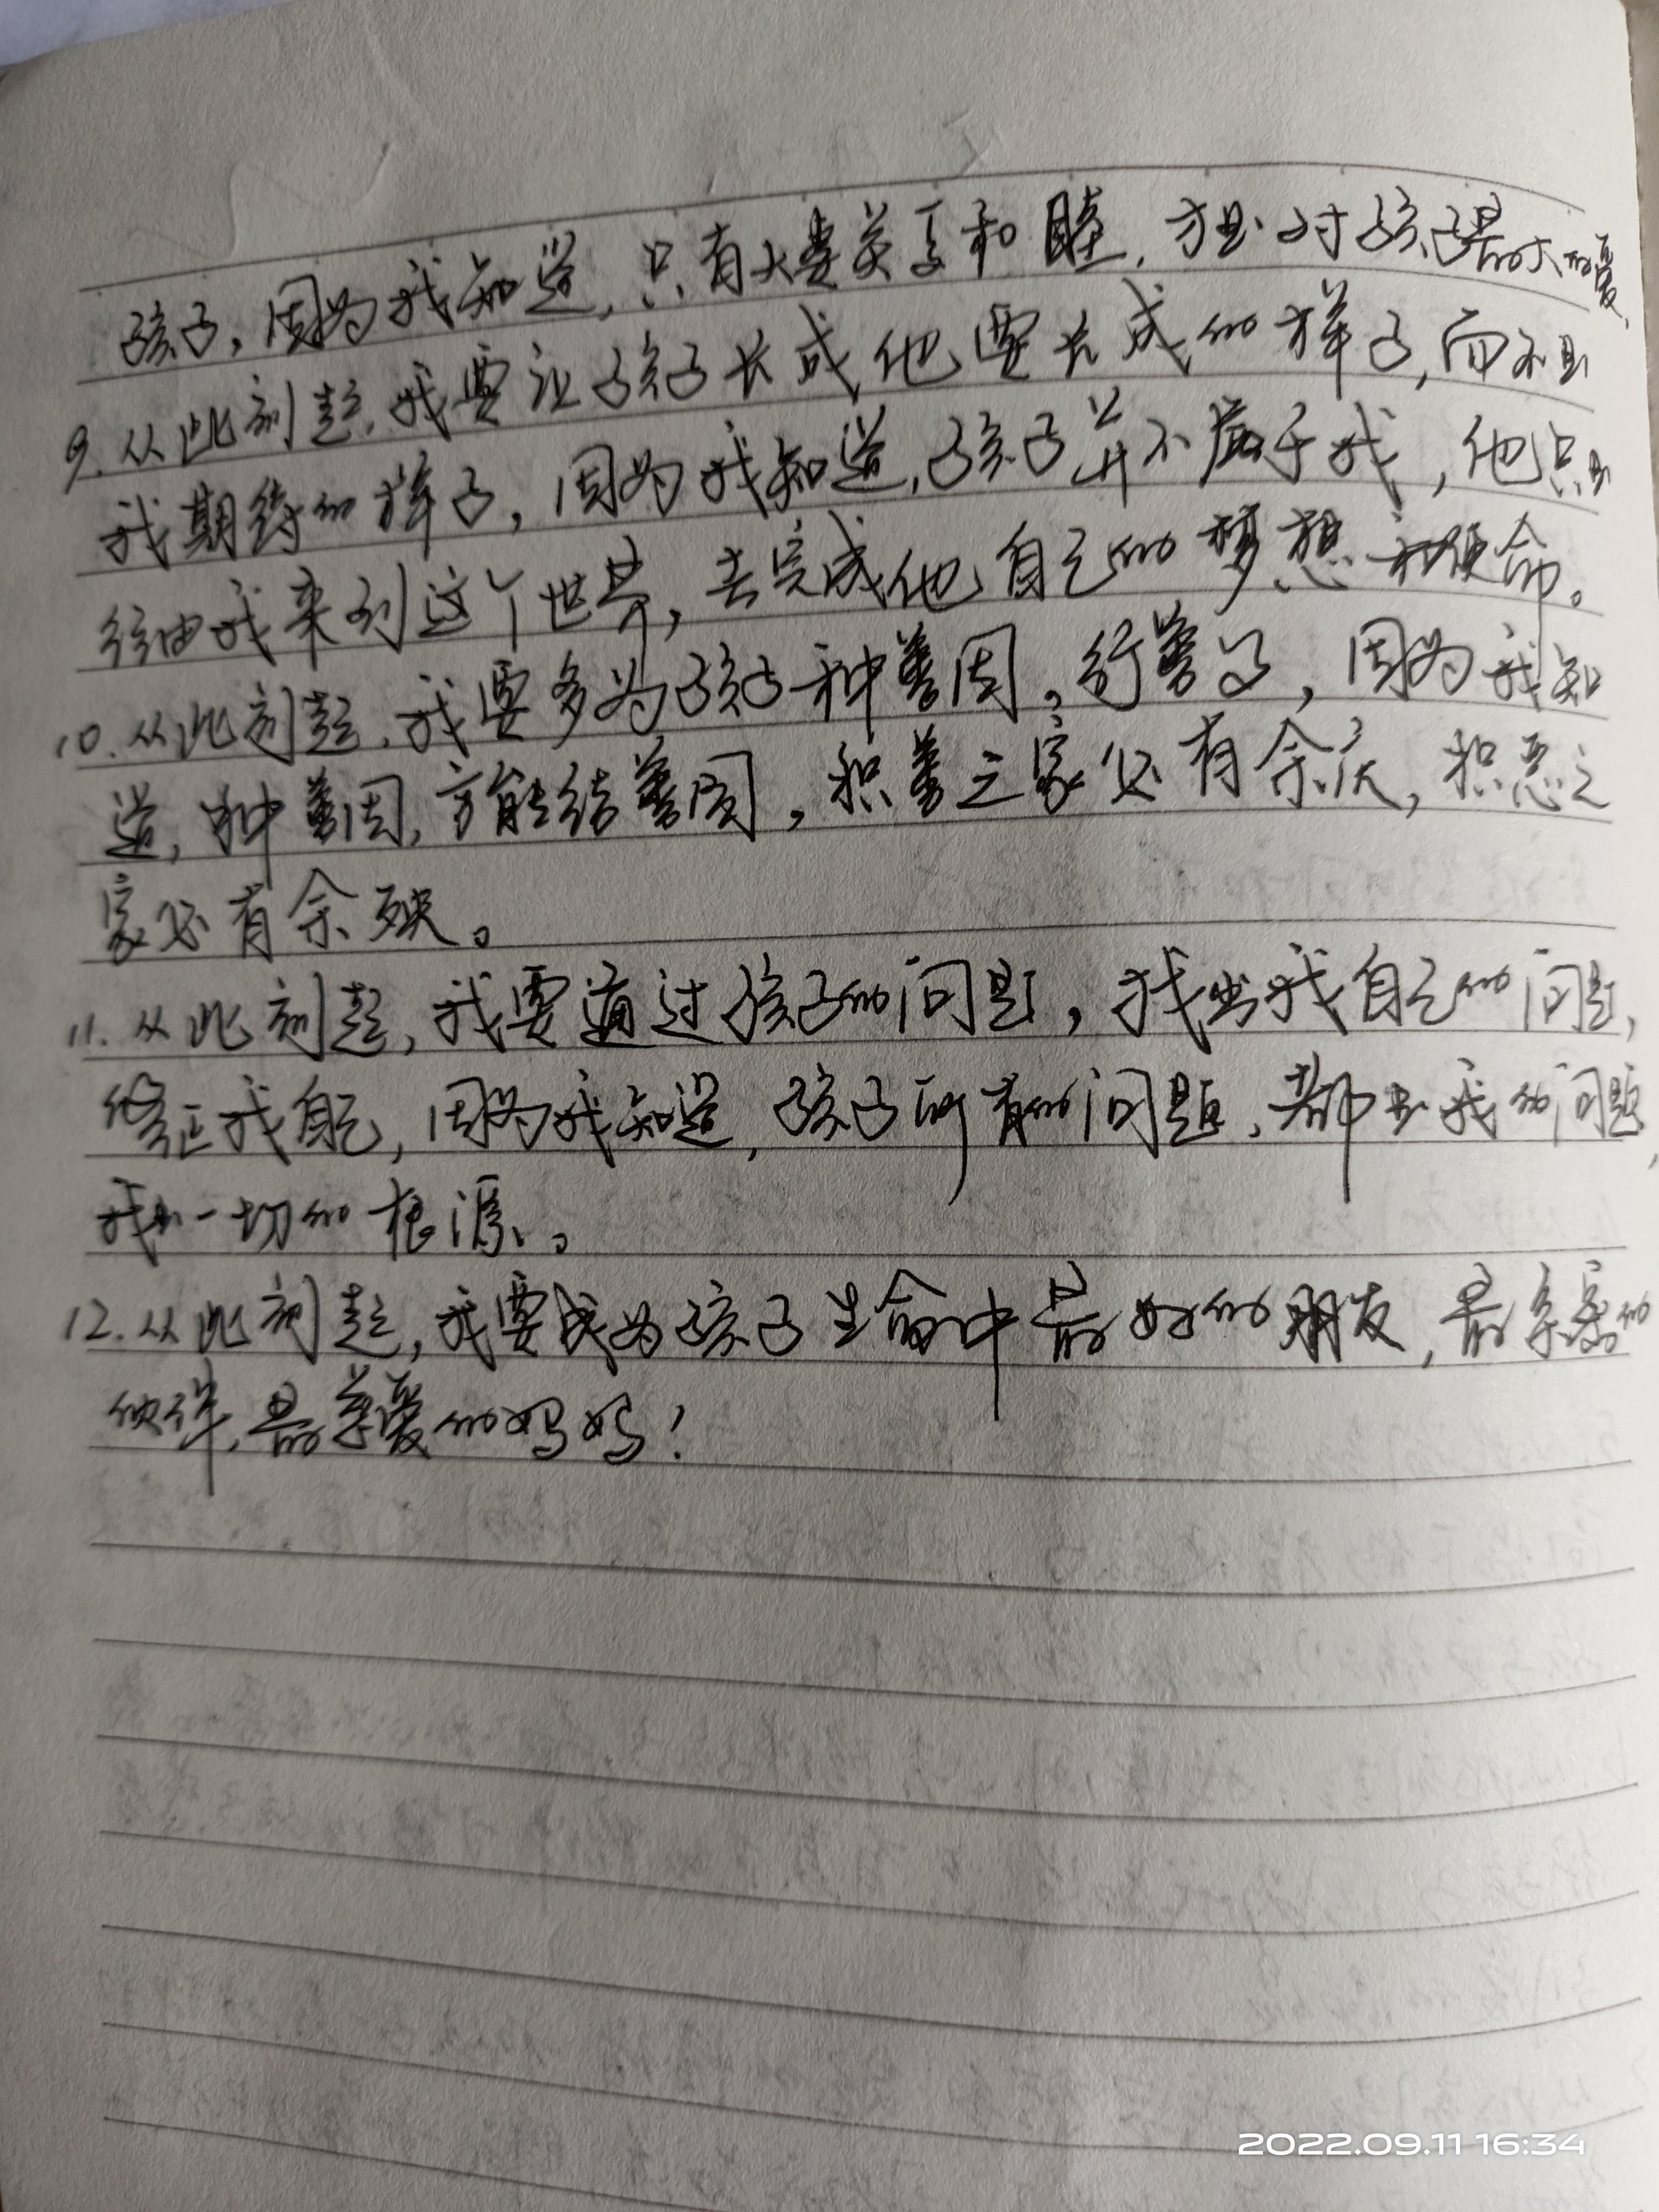 孩子，因为我知道，只有夫妻关系和睦，才是对孩子最大的爱。
9.从此刻起，我要让孩子长成他要长成的样子，而不是
我期待的样子，因为我知道，孩子并不属于我，他只是
经由我来到这个世界，去完成他自己的梦想和使命。
10.从此刻起，我要多为孩子种善因，行善，因为我知
道，种善因，方能结善因，积善之家必有余庆，积恶之
家必有余殃。
11.从此刻起，我要通过孩子的问题，找出我自己的问题，
修正我自己，因为我知道，孩子所有的问题，都是我的问题，
我是一切的根源。
12.从此刻起，我要成为孩子生命中最好的朋友，最亲密的
伙伴，最亲爱的妈妈！
2022.09.11 16:34